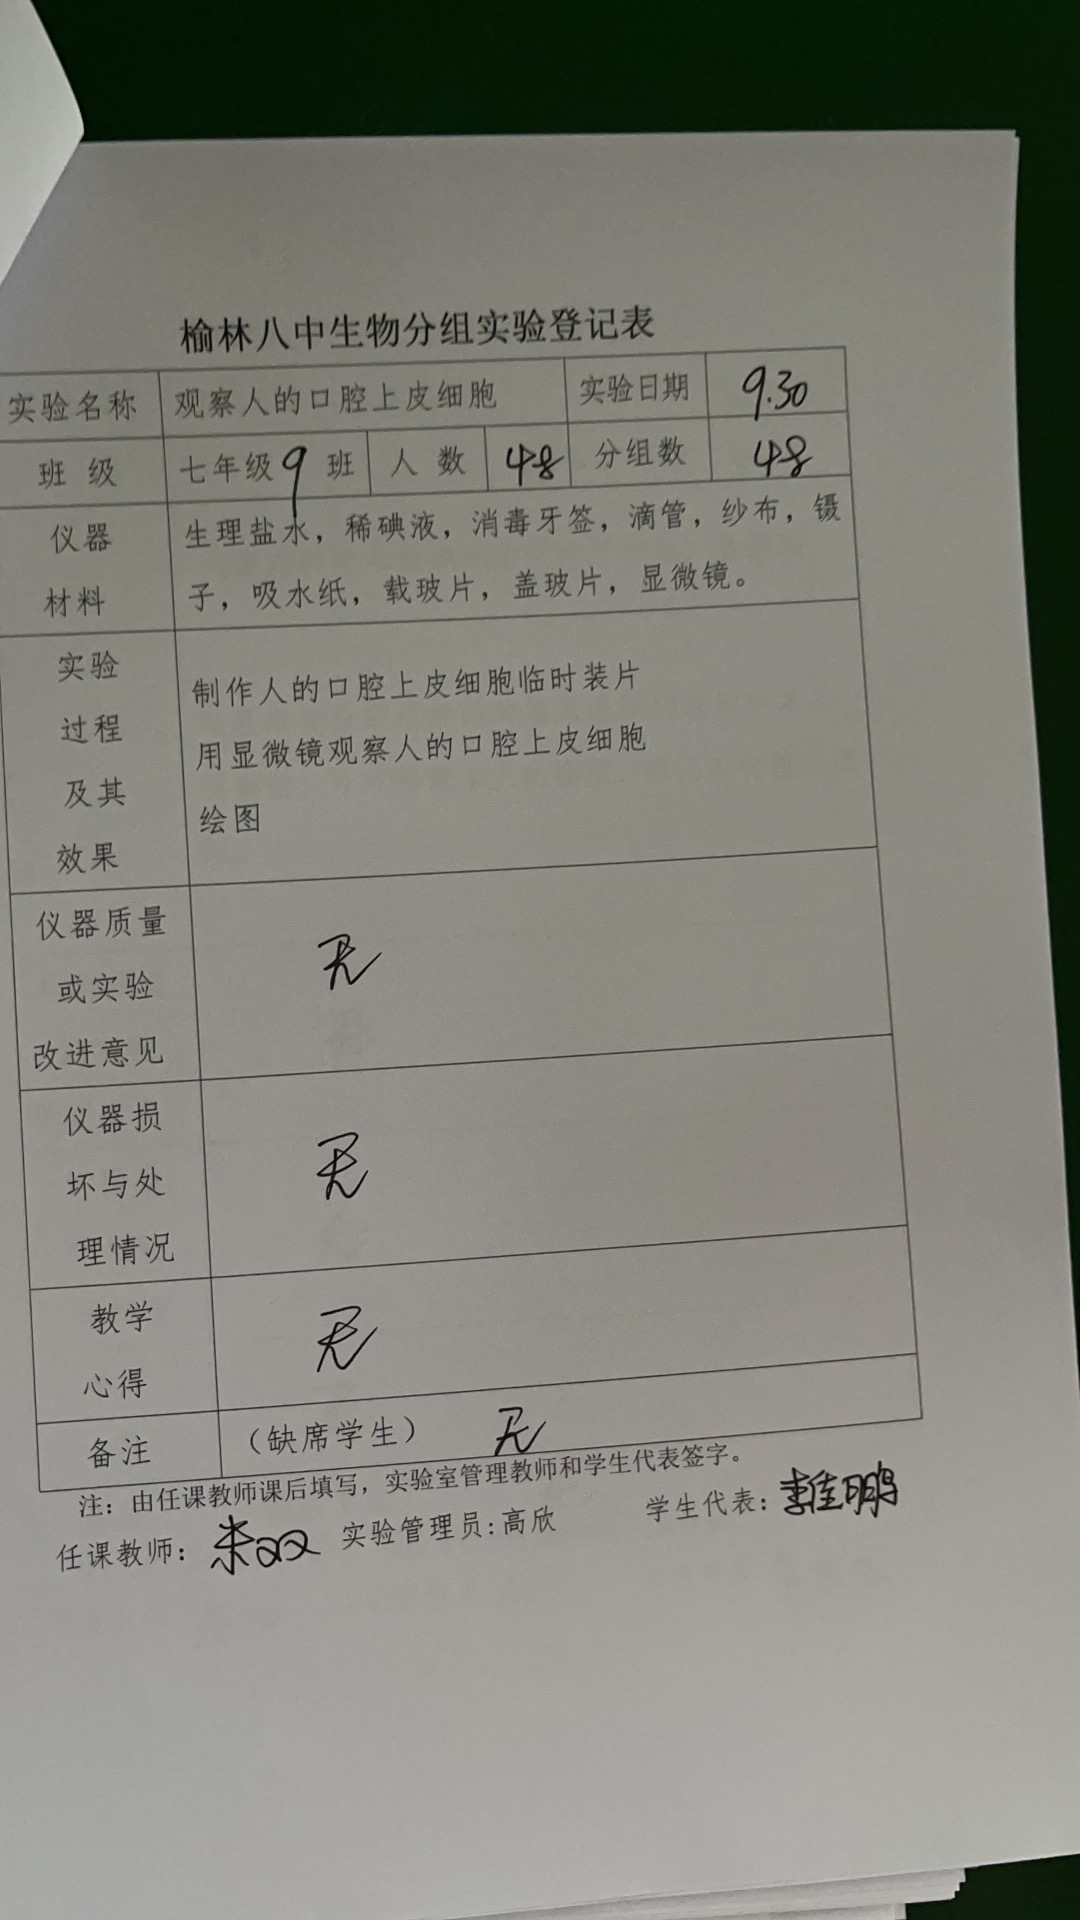 榆林八中生物分组实验登记表
实验名称 观察人的口腔上皮细胞 实验日期 9.30
班 级 七年级9班 人 数 48 分组数 48
仪器
材料
生理盐水，稀碘液，消毒牙签，滴管，纱布，镊
子，吸水纸，载玻片，盖玻片，显微镜。
实验
过程
及其
效果
制作人的口腔上皮细胞临时装片
用显微镜观察人的口腔上皮细胞
绘图
仪器质量
或实验
改进意见
无
仪器损
坏与处
理情况
无
教学
心得
无
备注 （缺席学生） 无
注：由任课教师课后填写，实验室管理教师和学生代表签字。
任课教师： 实验管理员:高欣 学生代表:李佳鹏